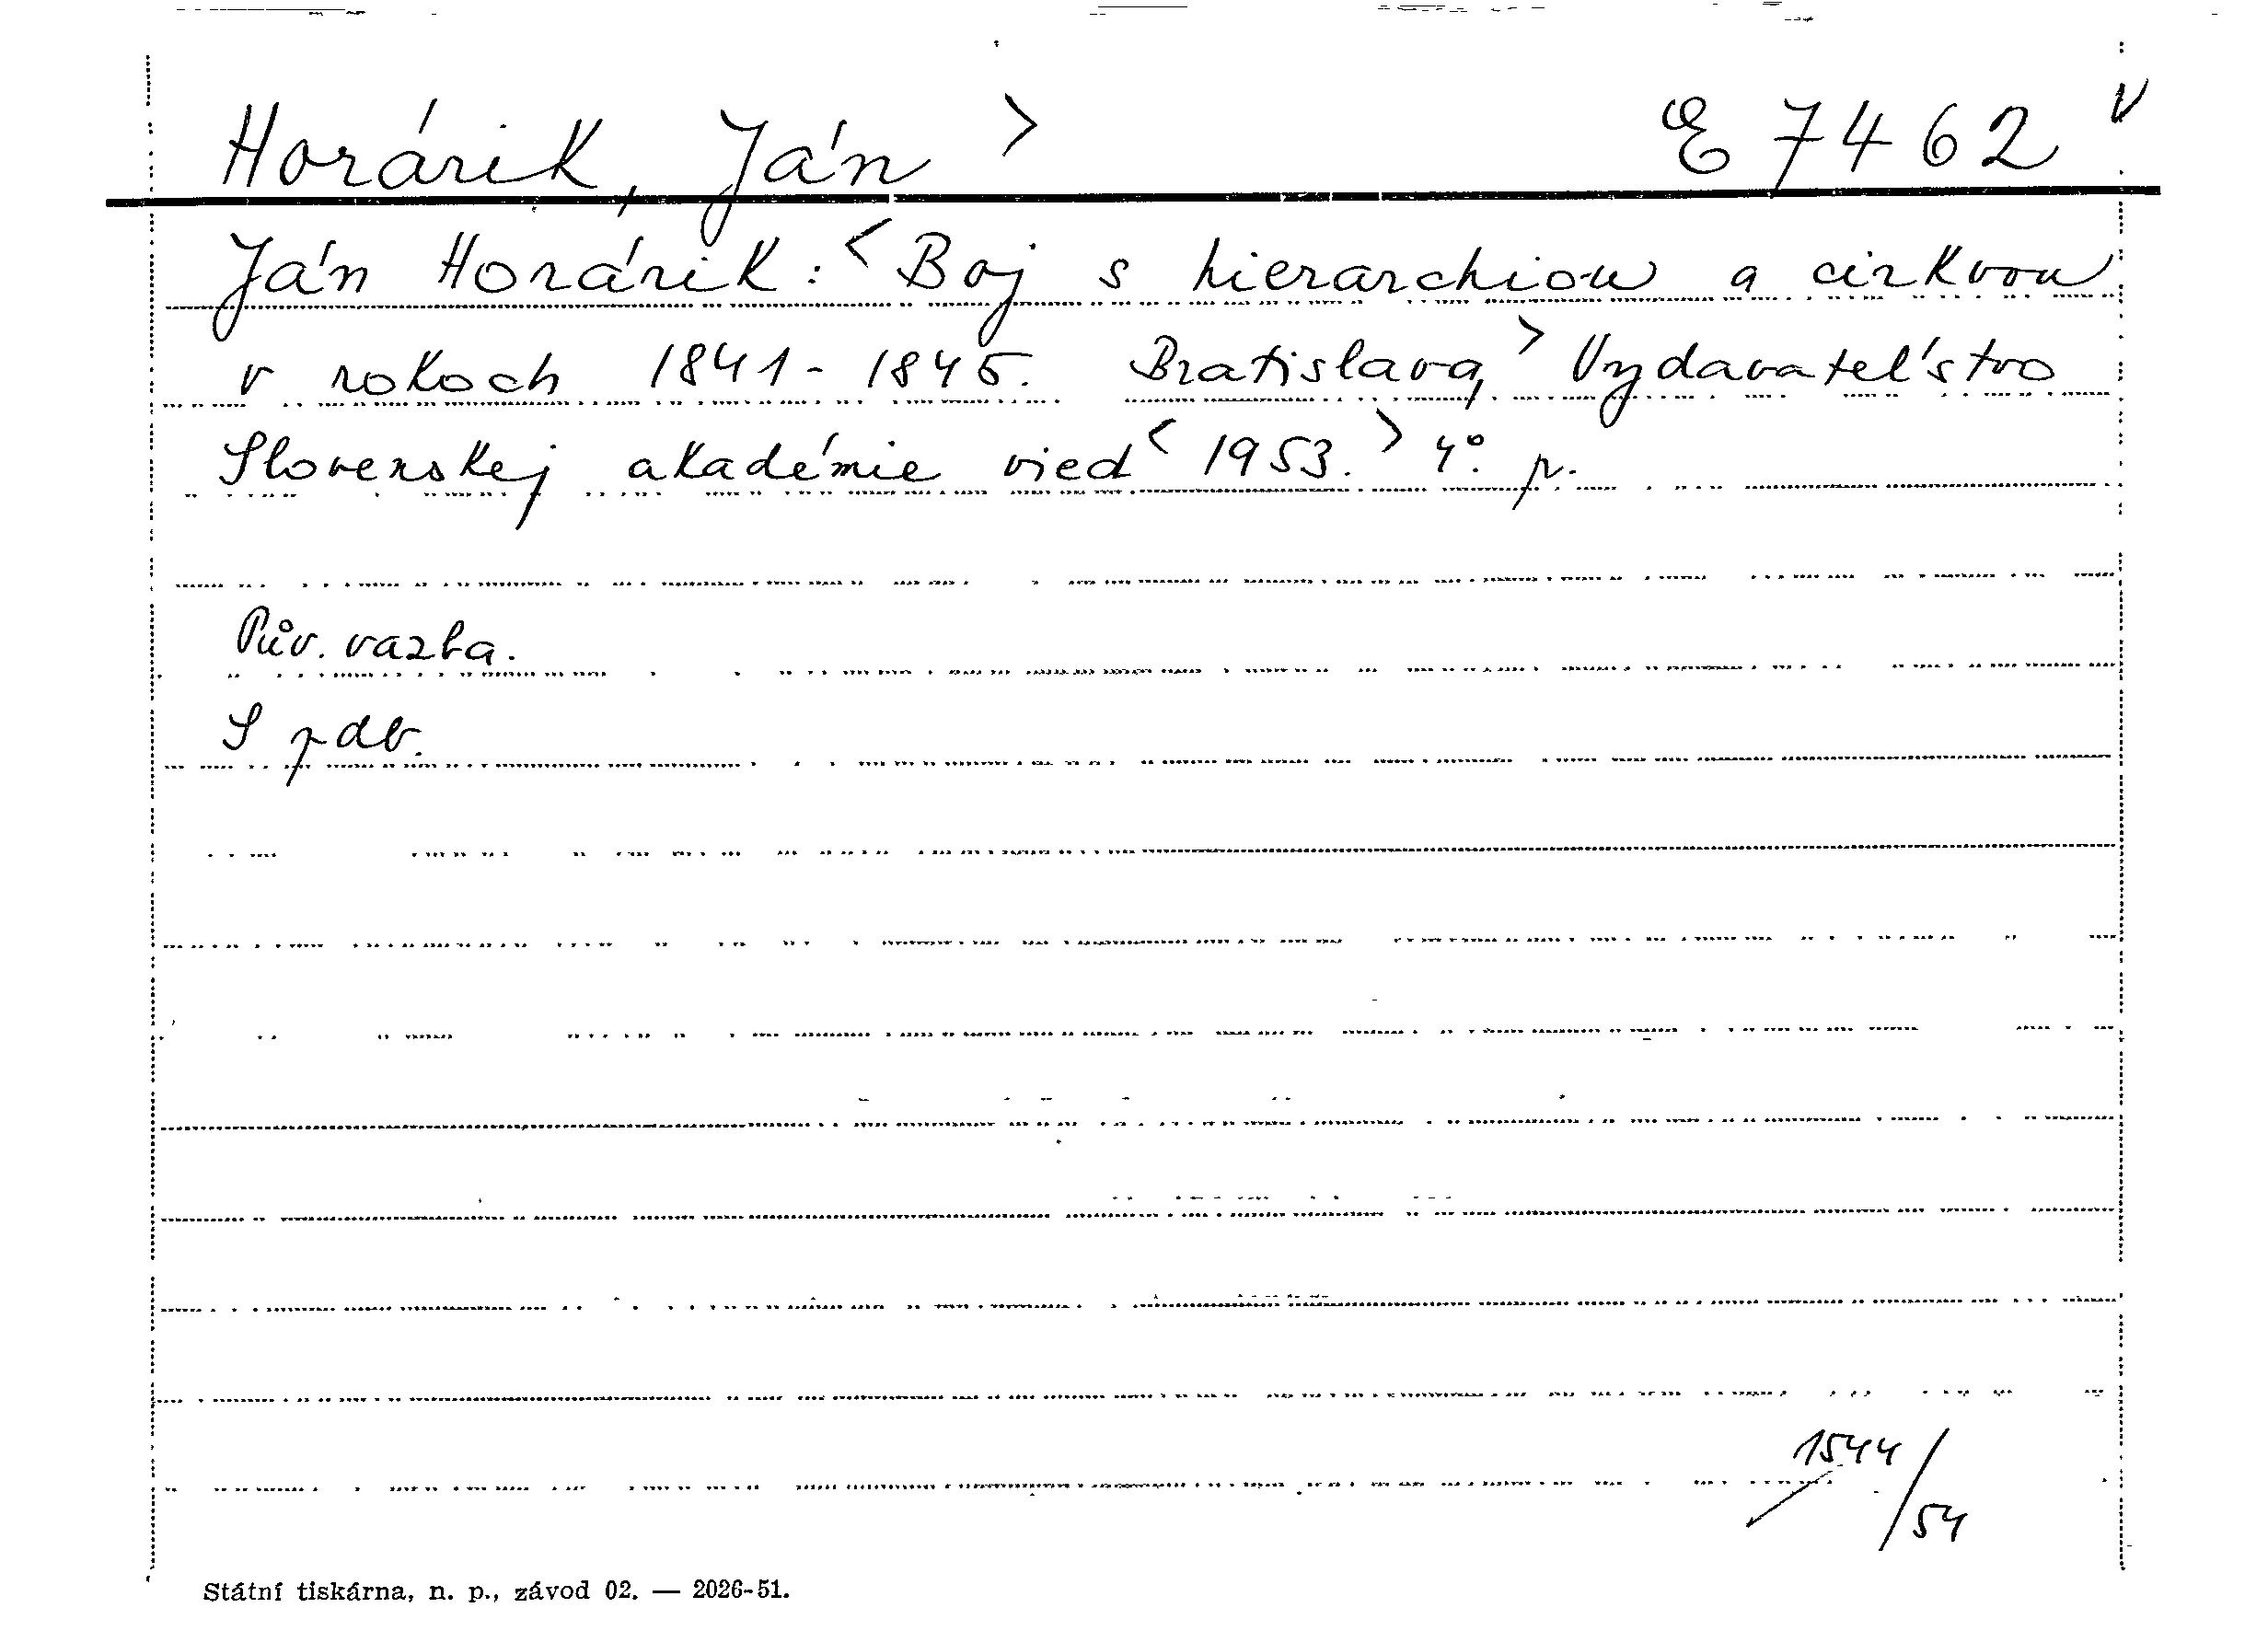 Horárik, Ján > E 7462 v
Ján Horárik: < Boj s hierarchiou a cirkvou
v rokoch 1841-1845. Bratislava, > Vydavatel'stvo
Slovenskej akadémie vied < 1953. > 4°. p.
Pův. vazba.
S pdb.
1544/54
Státní tiskárna, n. p., závod 02. — 2026-51.